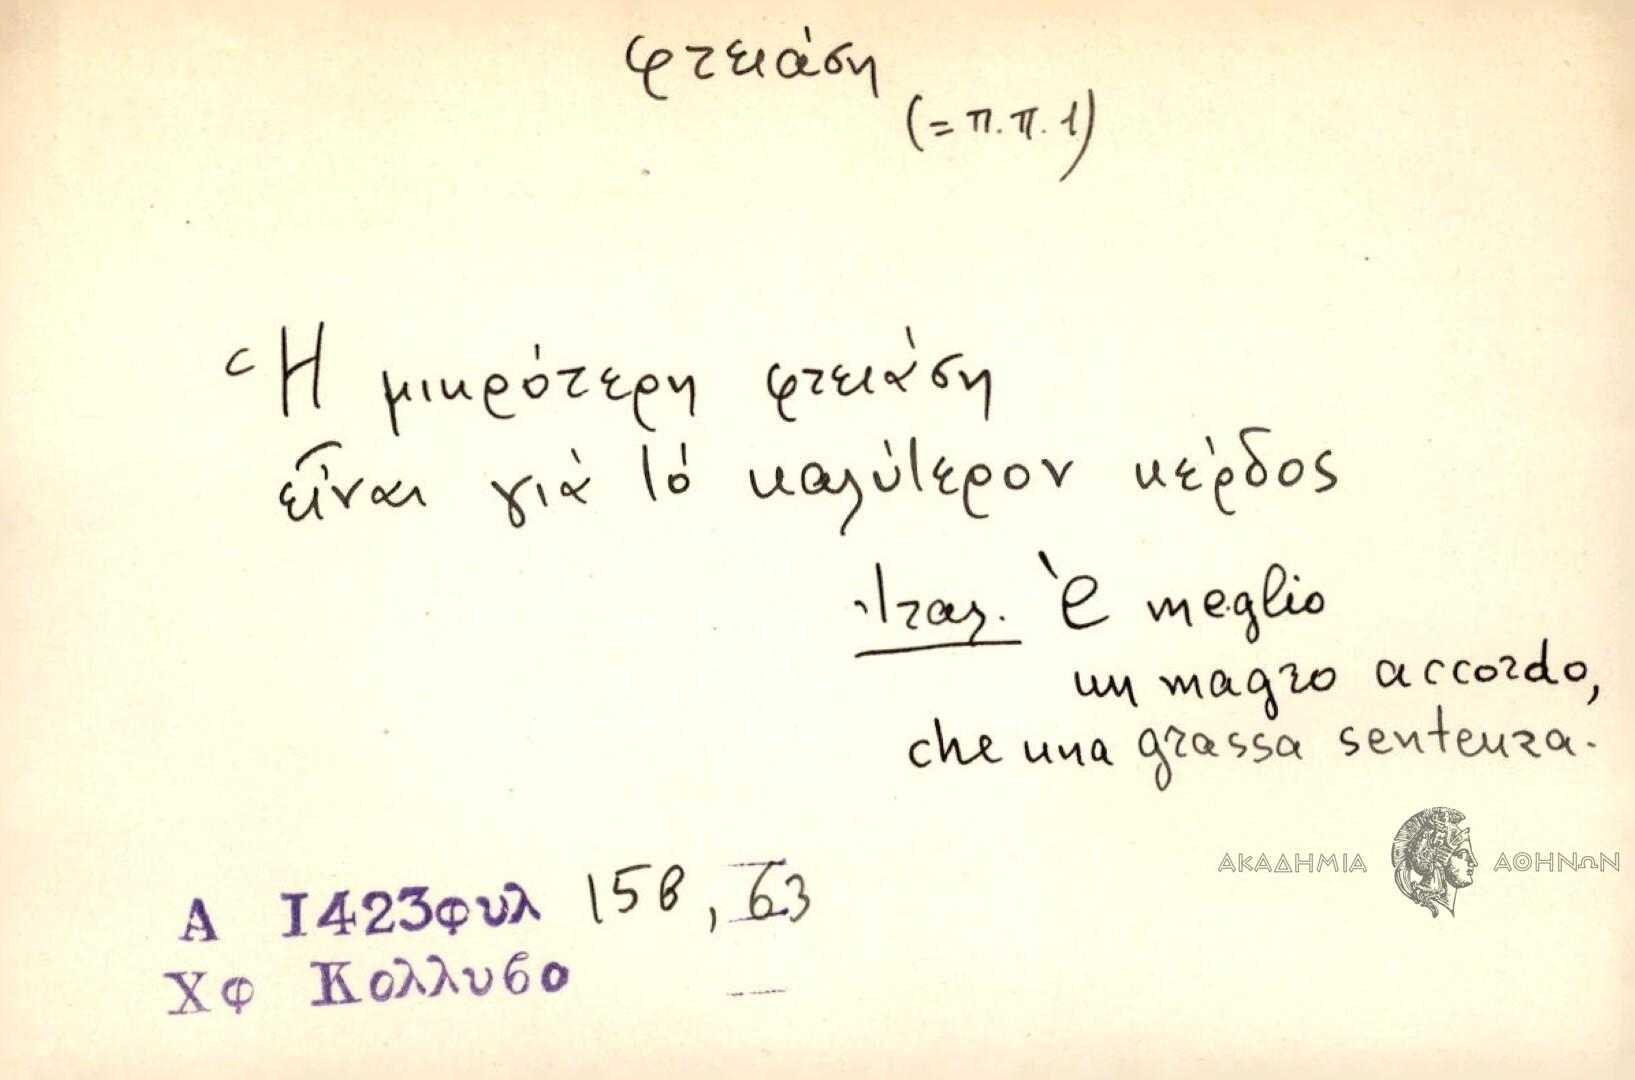 φτειάση
(= π.π. 1)
Ἡ μικρότερη φτειάση
εἶναι γιά τό καλύτερον κέρδος
Ἰταλ. È meglio
un magro accordo,
che una grassa sentenza.
ΑΚΑΔΗΜΙΑ ΑΘΗΝΩΝ
Α 1423φυλ 158, 63
Χφ Κολλυβο